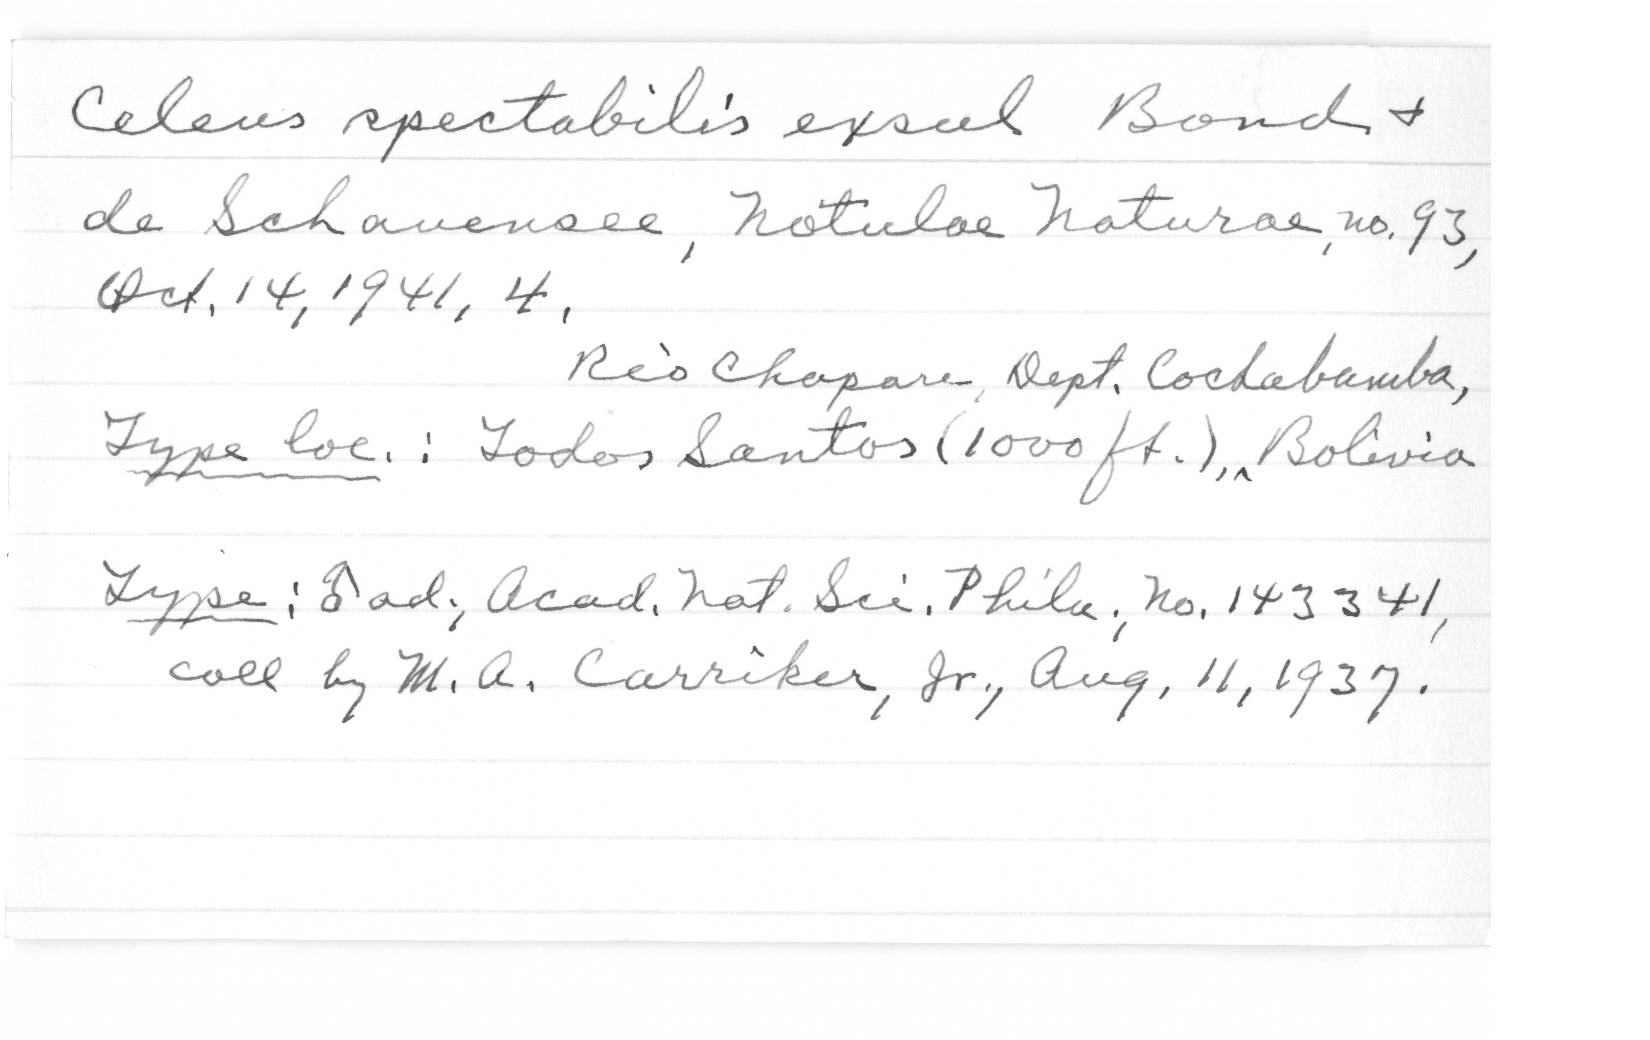 Celeus spectabilis exsul Bond &
de Schauensee, Notulae Naturae, no. 93,
Oct. 14, 1941, 4.
Rio Chapare, Dept. Cochabamba,
Type loc.: Todos Santos (1000 ft.), ^ Bolivia
Type: ♂ ad., Acad. Nat. Sci. Phila., No. 143341,
coll by M. A. Carriker, Jr., Aug. 11, 1937.